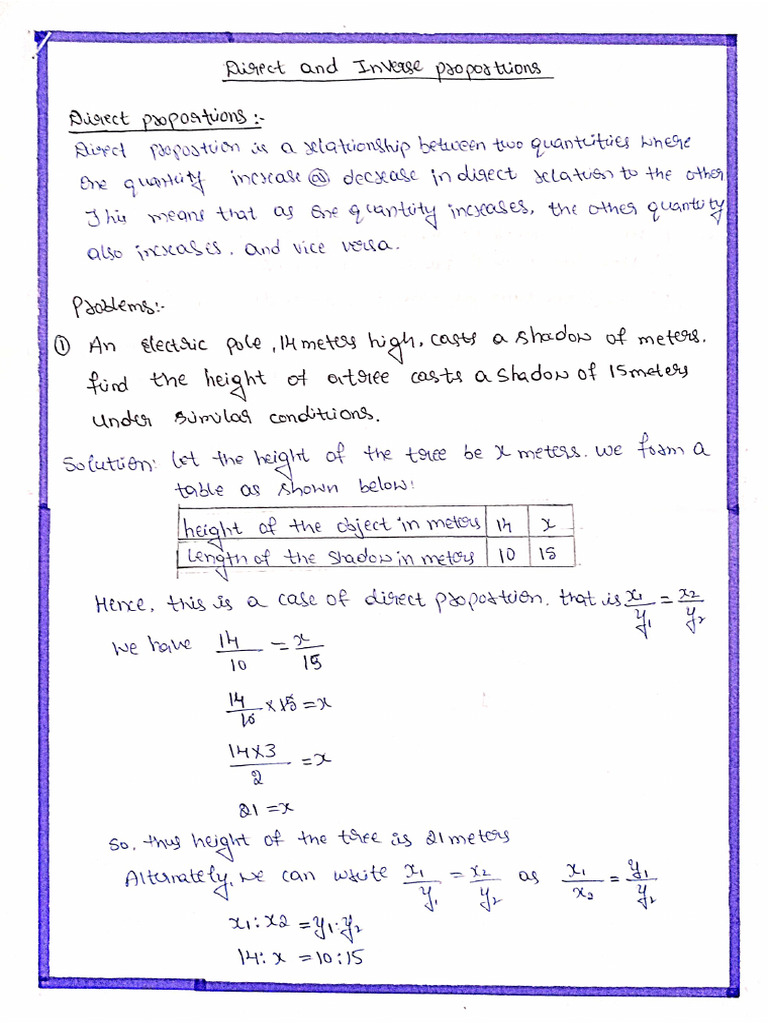 Direct and Inverse propostions
Direct propostions:-
Direct propostion is a relationship between two quantities where
one quantity increase or decrease in direct relation to the other
This means that as one quantity increases, the other quantity
also increases. and vice versa.
Problems:-
① An electric pole, 14 meters high, casts a shadow of meters.
find the height of a tree casts a shadow of 15 meters
under similar conditions.
Solution: let the height of the tree be x meters. we form a
table as shown below:
height of the object in meters 14 x
Length of the shadow in meters 10 15
Hence, this is a case of direct propostion. that is x₁/y₁ = x₂/y₂
we have 14/10 = x/15
14/10 × 15 = x
14×3/2 = x
21 = x
So, thus height of the tree is 21 meters
Alternately, we can write x₁/y₁ = x₂/y₂ as x₁/x₂ = y₁/y₂
x₁:x₂ = y₁:y₂
14:x = 10:15